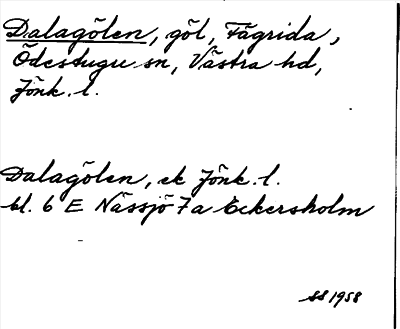 Dalagölen, göl, Fägrida,
Ödestugu sn, Västra hd,
Jönk. l.
Dalagölen, ek Jönk. l.
bl. 6 E Nässjö 7a Eckersholm
SS 1958